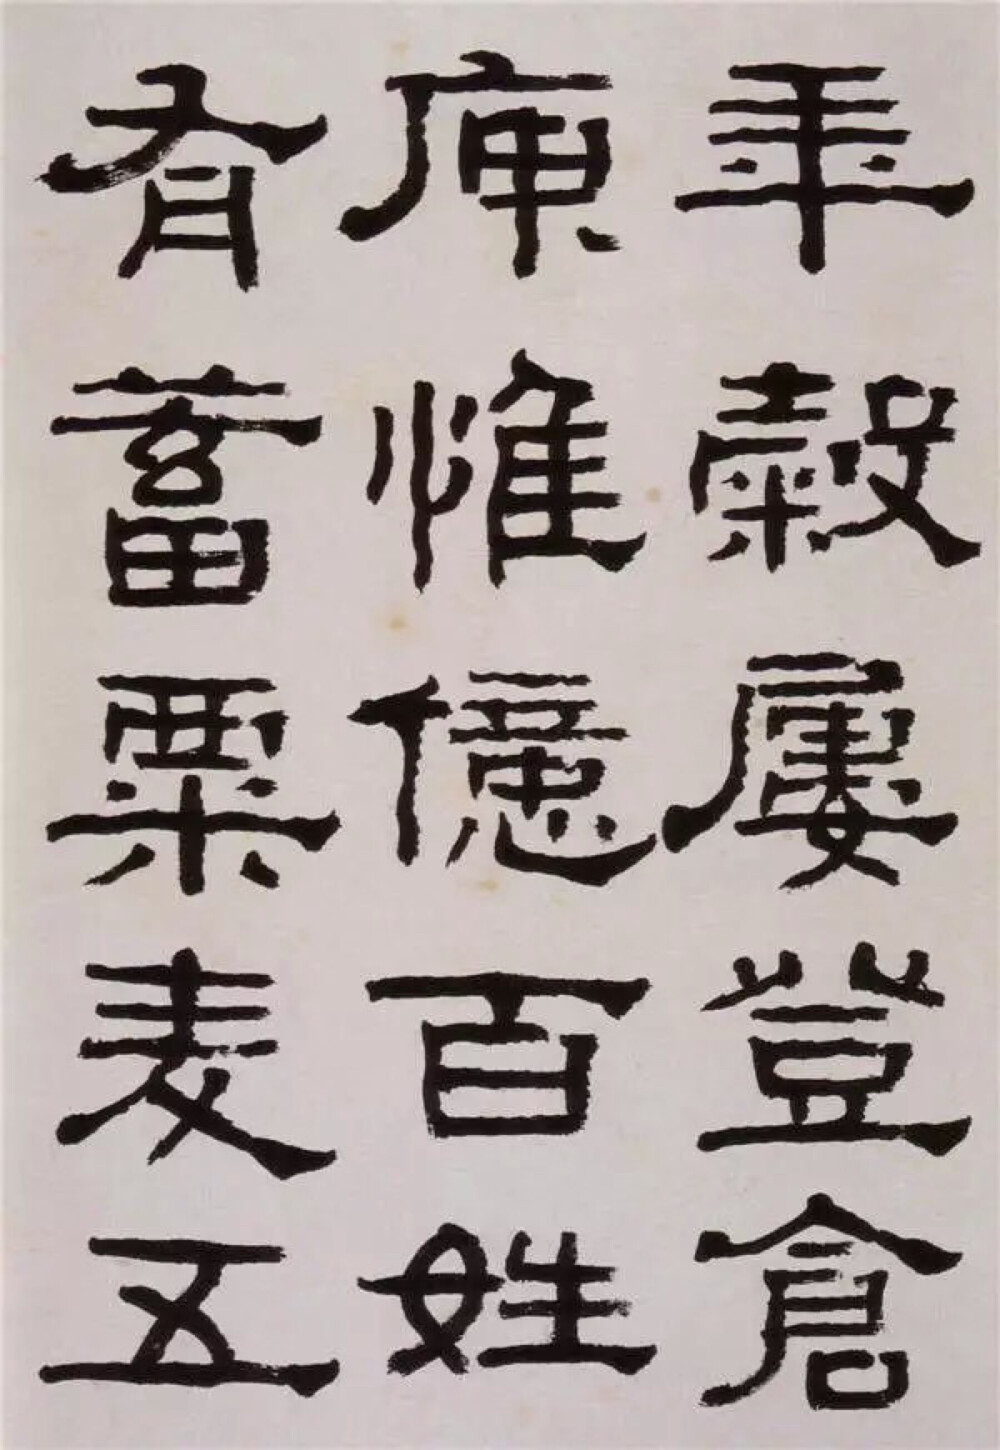 年穀屢登倉
庾惟億百姓
有蓄粟麦五